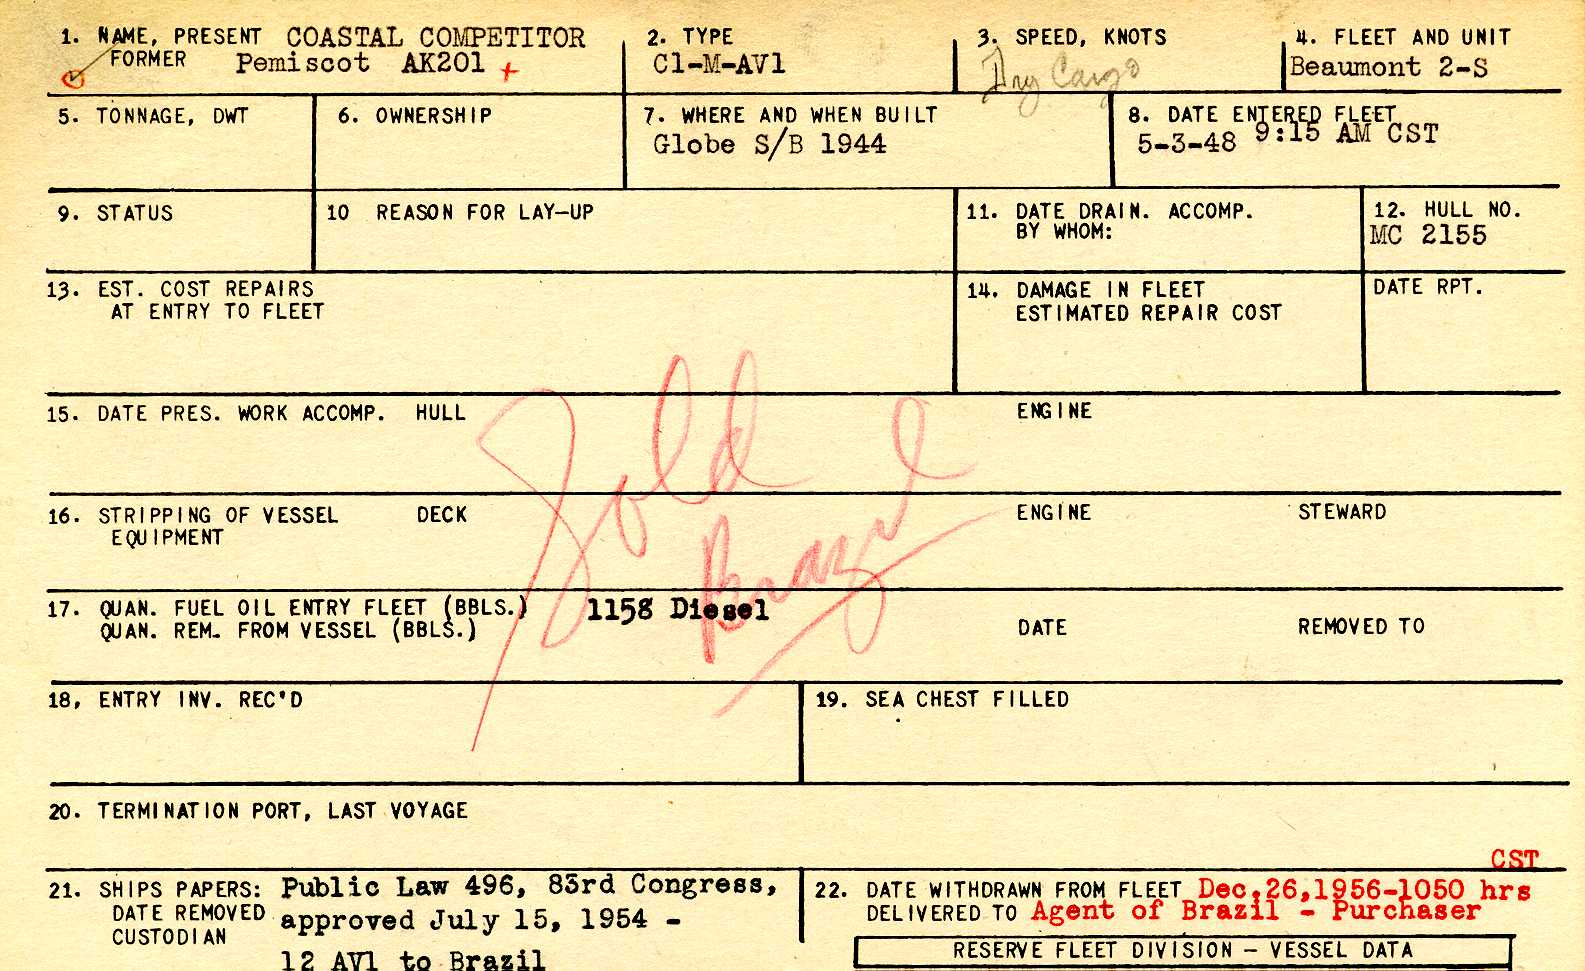 1. NAME, PRESENT COASTAL COMPETITOR
FORMER Pemiscot AK201 +
2. TYPE
C1-M-AV1
3. SPEED, KNOTS
Dry Cargo
4. FLEET AND UNIT
Beaumont 2-S
5. TONNAGE, DWT
6. OWNERSHIP
7. WHERE AND WHEN BUILT
Globe S/B 1944
8. DATE ENTERED FLEET
5-3-48 9:15 AM CST
9. STATUS
10 REASON FOR LAY-UP
11. DATE DRAIN. ACCOMP.
BY WHOM:
12. HULL NO.
MC 2155
13. EST. COST REPAIRS
AT ENTRY TO FLEET
14. DAMAGE IN FLEET
ESTIMATED REPAIR COST
DATE RPT.
15. DATE PRES. WORK ACCOMP. HULL ENGINE
Sold
Brazil
16. STRIPPING OF VESSEL DECK ENGINE STEWARD
EQUIPMENT
17. QUAN. FUEL OIL ENTRY FLEET (BBLS.) 1158 Diesel
QUAN. REM. FROM VESSEL (BBLS.) DATE REMOVED TO
18. ENTRY INV. REC'D
19. SEA CHEST FILLED
20. TERMINATION PORT, LAST VOYAGE
21. SHIPS PAPERS: Public Law 496, 83rd Congress,
DATE REMOVED approved July 15, 1954 -
CUSTODIAN
12 AV1 to Brazil
CST
22. DATE WITHDRAWN FROM FLEET Dec.26,1956-1050 hrs
DELIVERED TO Agent of Brazil - Purchaser
RESERVE FLEET DIVISION - VESSEL DATA